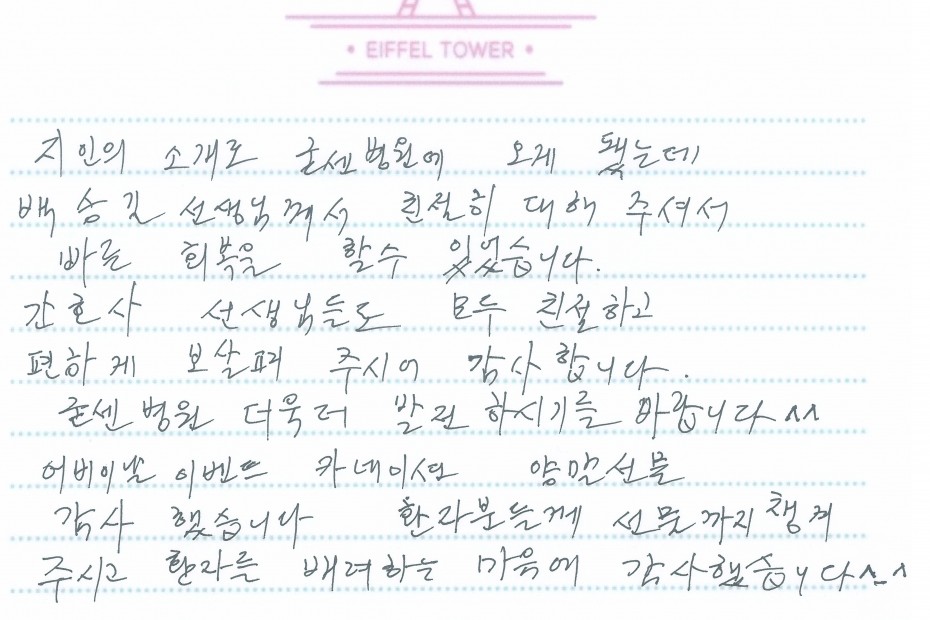 • EIFFEL TOWER •
지인의 소개로 굳센병원에 오게 됐는데
백승길 선생님께서 친절히 대해 주셔서
빠른 회복을 할수 있었습니다.
간호사 선생님들도 모두 친절하고
편하게 보살펴 주시어 감사합니다.
굳센병원 더욱더 발전하시기를 바랍니다^^
어버이날 이벤트 카네이션 양말선물
감사했습니다 환자분들께 선물까지 챙겨
주시고 환자를 배려하는 마음에 감사했습니다^-^